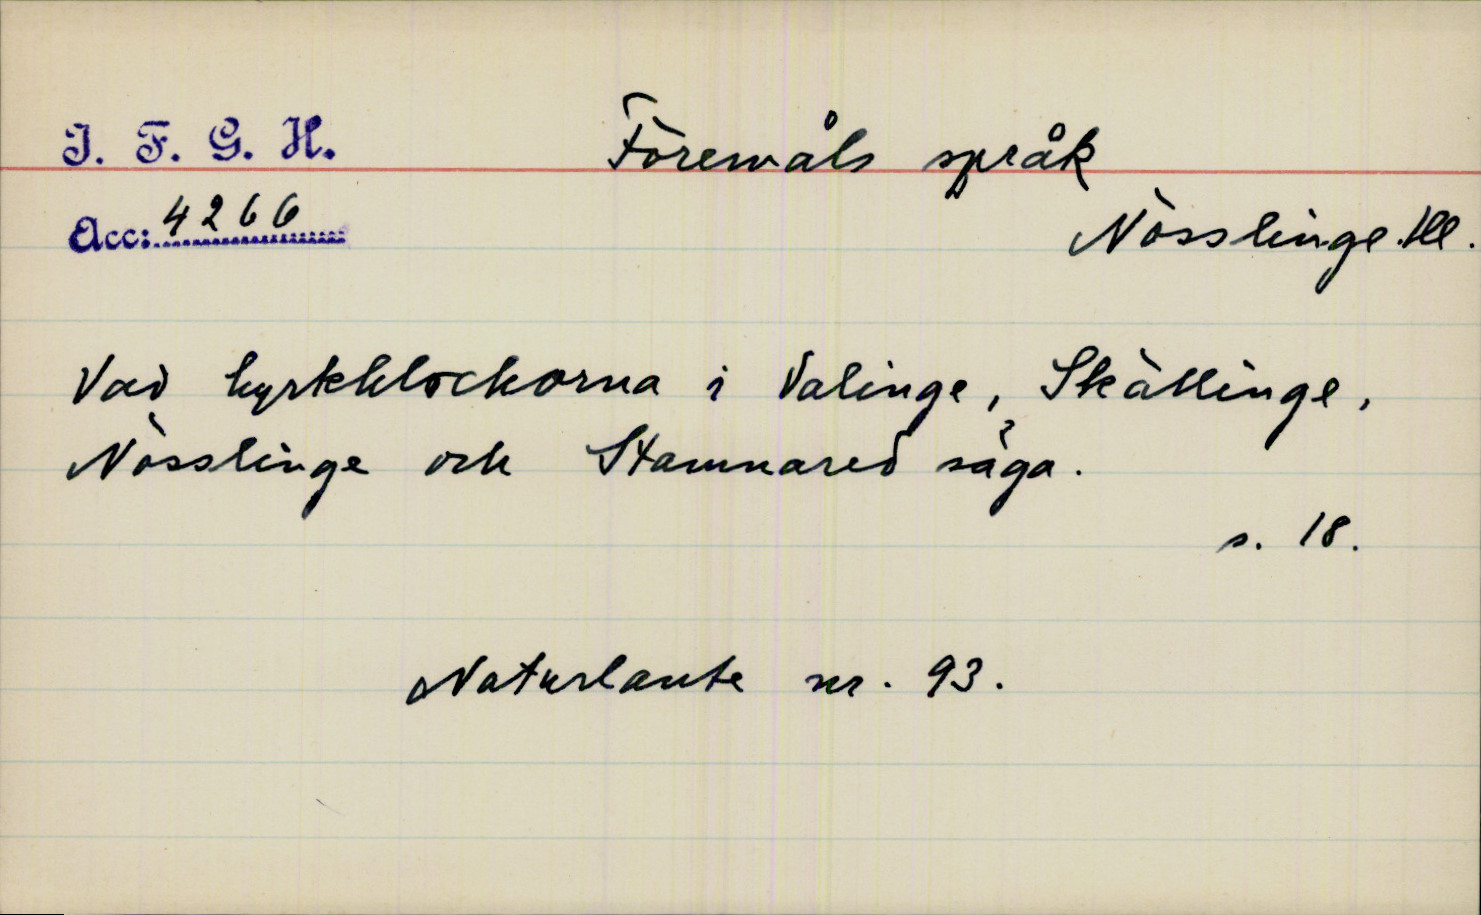 I. F. G. H. Föremåls språk
Acc: 4266 Nösslinge. Hll.
Vad kyrkklockorna i Valinge, Skällinge,
Nösslinge och Stamnared säga.
s. 18.
Naturlaute nr. 93.